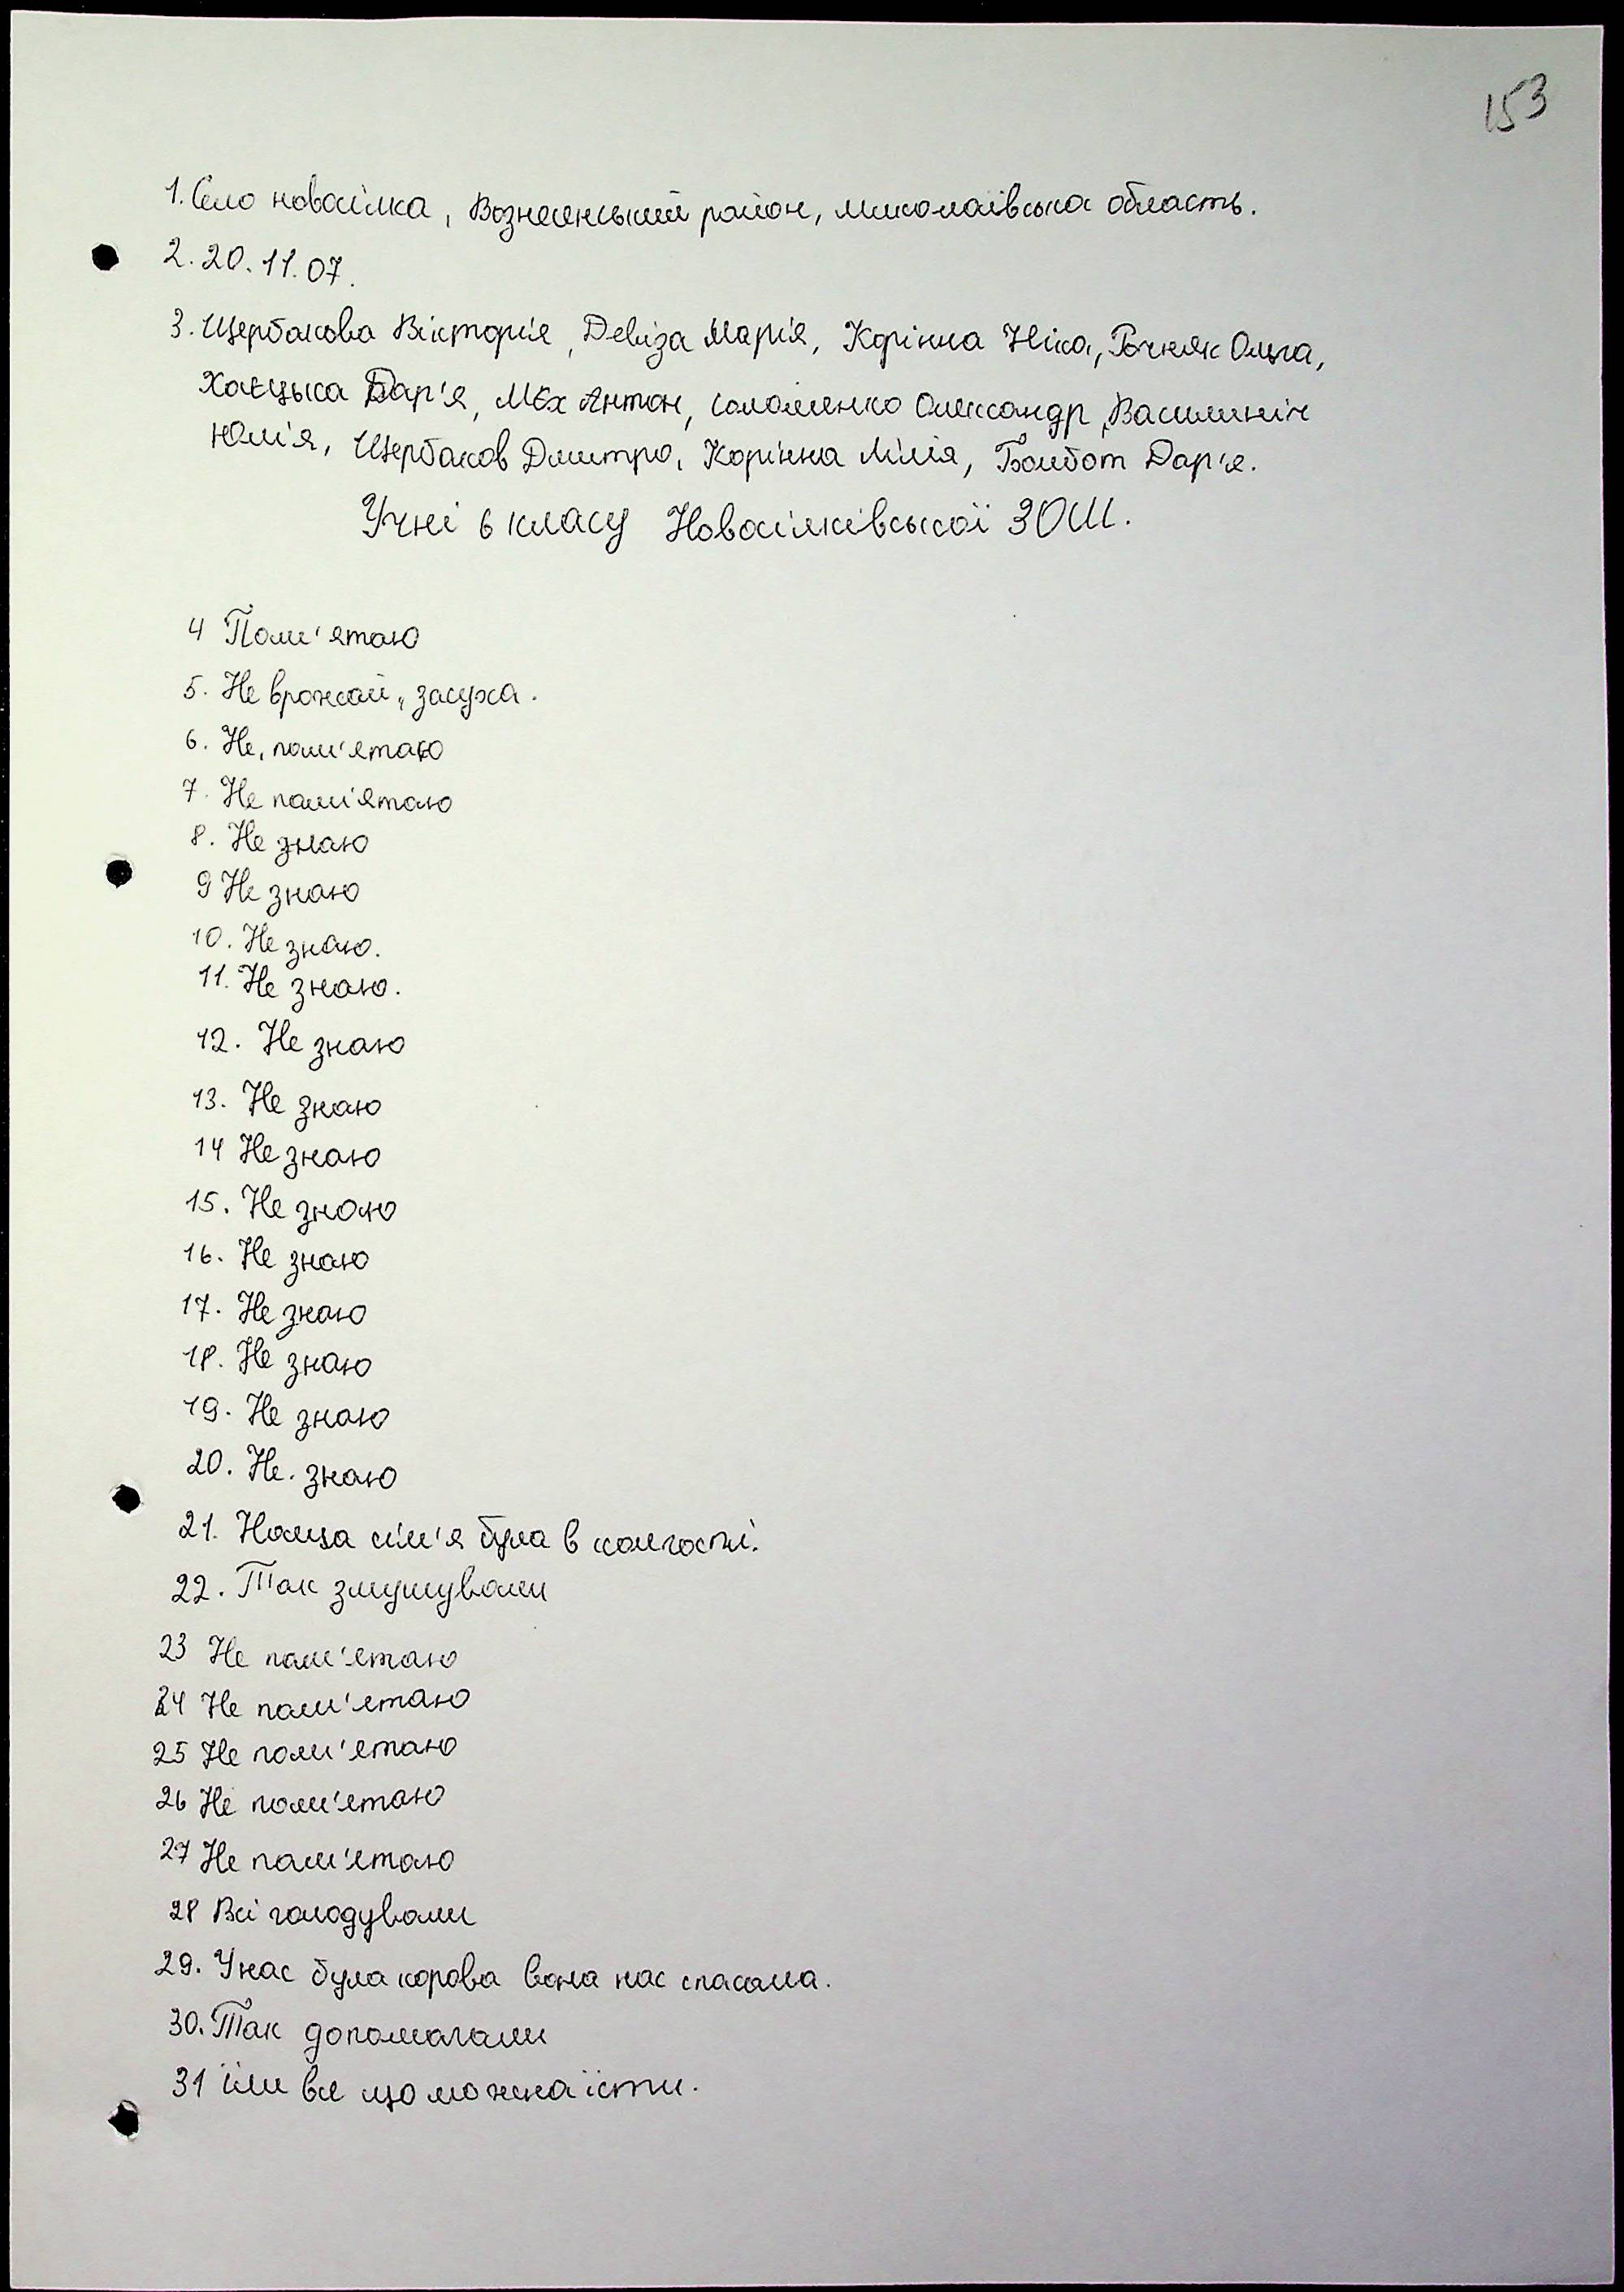 153
1. Село новосілка, Вознесенський район, миколаївська область.
2. 20.11.07.
3. Щербакова Вікторія, Девіза Марія, Корінна Ніка, Ольга,
Хаєцька Дар'я, Мєх Антон, соломенко Олександр, Василиніч
Юлія, Щербаков Дмитро, Корінна Лілія, Бомбот Дар'я.
Учні 6 класу Новосілківської ЗОШ.
4 Пам'ятаю
5. Не врожай, засуха.
6. Не, пам'ятаю
7. Не пам'ятаю
8. Не знаю
9 Не знаю
10. Не знаю.
11. Не знаю.
12. Не знаю
13. Не знаю
14 Не знаю
15. Не знаю
16. Не знаю
17. Не знаю
18. Не знаю
19. Не знаю
20. Не. знаю
21. Наша сім'я була в колгоспі.
22. Так змушували
23 Не пам'ятаю
24 Не пам'ятаю
25 Не пам'ятаю
26 Не пам'ятаю
27 Не пам'ятаю
28 Всі голодували
29. У нас була корова вона нас спасала.
30. Так допомагали
31 їли все що можна їсти.